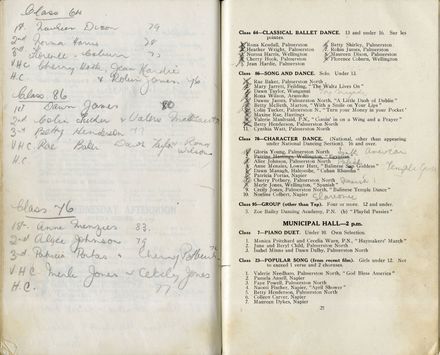 Class 64
1st Noreen Dixon 79
2nd Norma Harris 78
3rd Florence Coburn 77
VHC Cherry Hock, Jean Hardie
H.C. & Robin Jones. 76
Class 86
1st Dawn James 80
2nd Colin Tucker & Valerie
3rd Betty Henderson 77
VHC Rae Baker Dawn Taylor Rona Wilson
H.C.
Class 76
1st Anne Menzies 83.
2nd Alyce Johnson 79
3rd Patricia Portas & Cherry
VHC Merle Jones & Cecily Jones
H.C. 77
Class 64—CLASSICAL BALLET DANCE. 11 and under 16. Sur les
pointes.
Rona Kendall, Palmerston
Heather Wright, Palmerston
Norma Harris, Wellington
Cherry Hock, Palmerston
Jean Hardie, Palmerston
Betty Shirley, Palmerston
Robin James, Palmerston
Noreen Dixon, Palmerston
Florence Coburn, Wellington
Class 86—SONG AND DANCE. Solo. Under 13.
Rae Baker, Palmerston North
Mary Jarrett, Feilding, "The Waltz Lives On"
Dawn Taylor, Wanganui
Rona Wilson, Aramoho
Dawne James, Palmerston North, "A Little Dash of Dublin"
Betty McIlrath, Marton, "With a Smile on Your Lips"
Colin Tucker, Palmerston N., "Turn your Money in your Pocket"
Maxine Rae, Hastings
Valerie Mankvald, P.N., "Comin' in on a Wing and a Prayer"
Betty Henderson, Palmerston North
11. Cynthia Watt, Palmerston North
Class 76—CHARACTER DANCE. (National, other than appearing
under National Dancing Section). 16 and over.
Gloria Young, Palmerston North
Patrine Hastings, Wellington, "Egyptian"
Alice Johnson, Palmerston North
Anne Menzies, Lower Hutt, "Balinese Sun Goddess" Temple
Dawn Managh, Halcombe, "Cuban Rhumba"
Patricia Portas, Napier
Cherry Pothury, Palmerston North
Merle Jones, Wellington, "Spanish"
9. Cecily Jones, Palmerston North, "Balinese Temple Dance"
10. Noeline Colbert, Napier
Class 95—GROUP (other than Tap). Four or more. 12 and under.
3. Zoe Bailey Dancing Academy, P.N. (b) "Playful Pussies"
MUNICIPAL HALL—2 p.m.
Class 7—PIANO DUET. Under 10. Own Selection.
1. Monica Pritchard and Cecilia Warn, P.N., "Haymakers' March"
2. June and Beryl Child, Palmerston North
3. Isabel Minns and Dawn Colby, Palmerston North
Class 23—POPULAR SONG (from recent film). Girls under 12. Not
to exceed 1 verse and 2 choruses.
1. Valerie Needham, Palmerston North, "God Bless America"
2. Pamela Ansell, Napier
3. Faye Powell, Napier
4. Naomi Fischer, Napier, "April Shower"
5. Betty Henderson, Palmerston North
6. Colleen Carver, Napier
7. Maureen Dykes, Napier
21